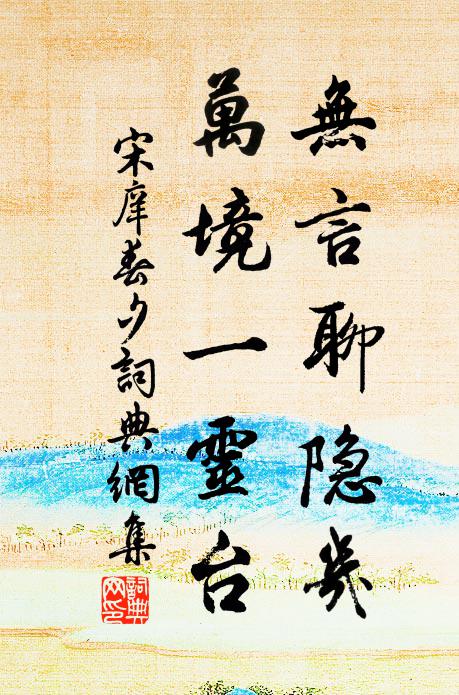 無言聊隐幾
萬境一靈台
宋庠春夕詞典網集
詞典
网印